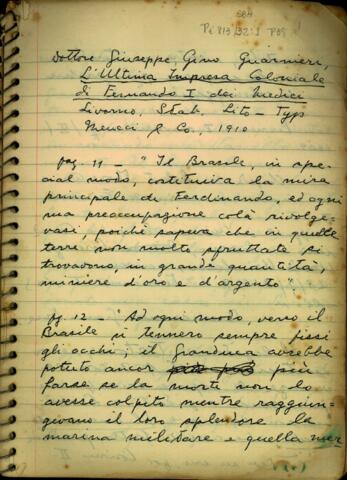 Dottore Giuseppe, Gino Guarnieri,
L'Ultima Impresa Coloniale
di Fernando I dei Medici
Livorno, Stab. Lito - Typ
Meucci & Co., 1910
pag. 11 - "Il Brasile, in spe-
cial modo, costituiva la mira
principale di Ferdinando, ed ogni
sua preoccupazione colà rivolge-
vasi, poichè sapeva che in quelle
terre non molto sfruttate si
trovavano, in grande quantità,
miniere d'oro e d'argento"
pg. 12 - "Ad ogni modo, verso il
Brasile si tennero sempre fissi
gli occhi; il Granduca avrebbe
potuto ancor più
farse se la morte non lo
avesse colpito mentre raggiun-
gevano il loro splendore la
marina militare e quella mer